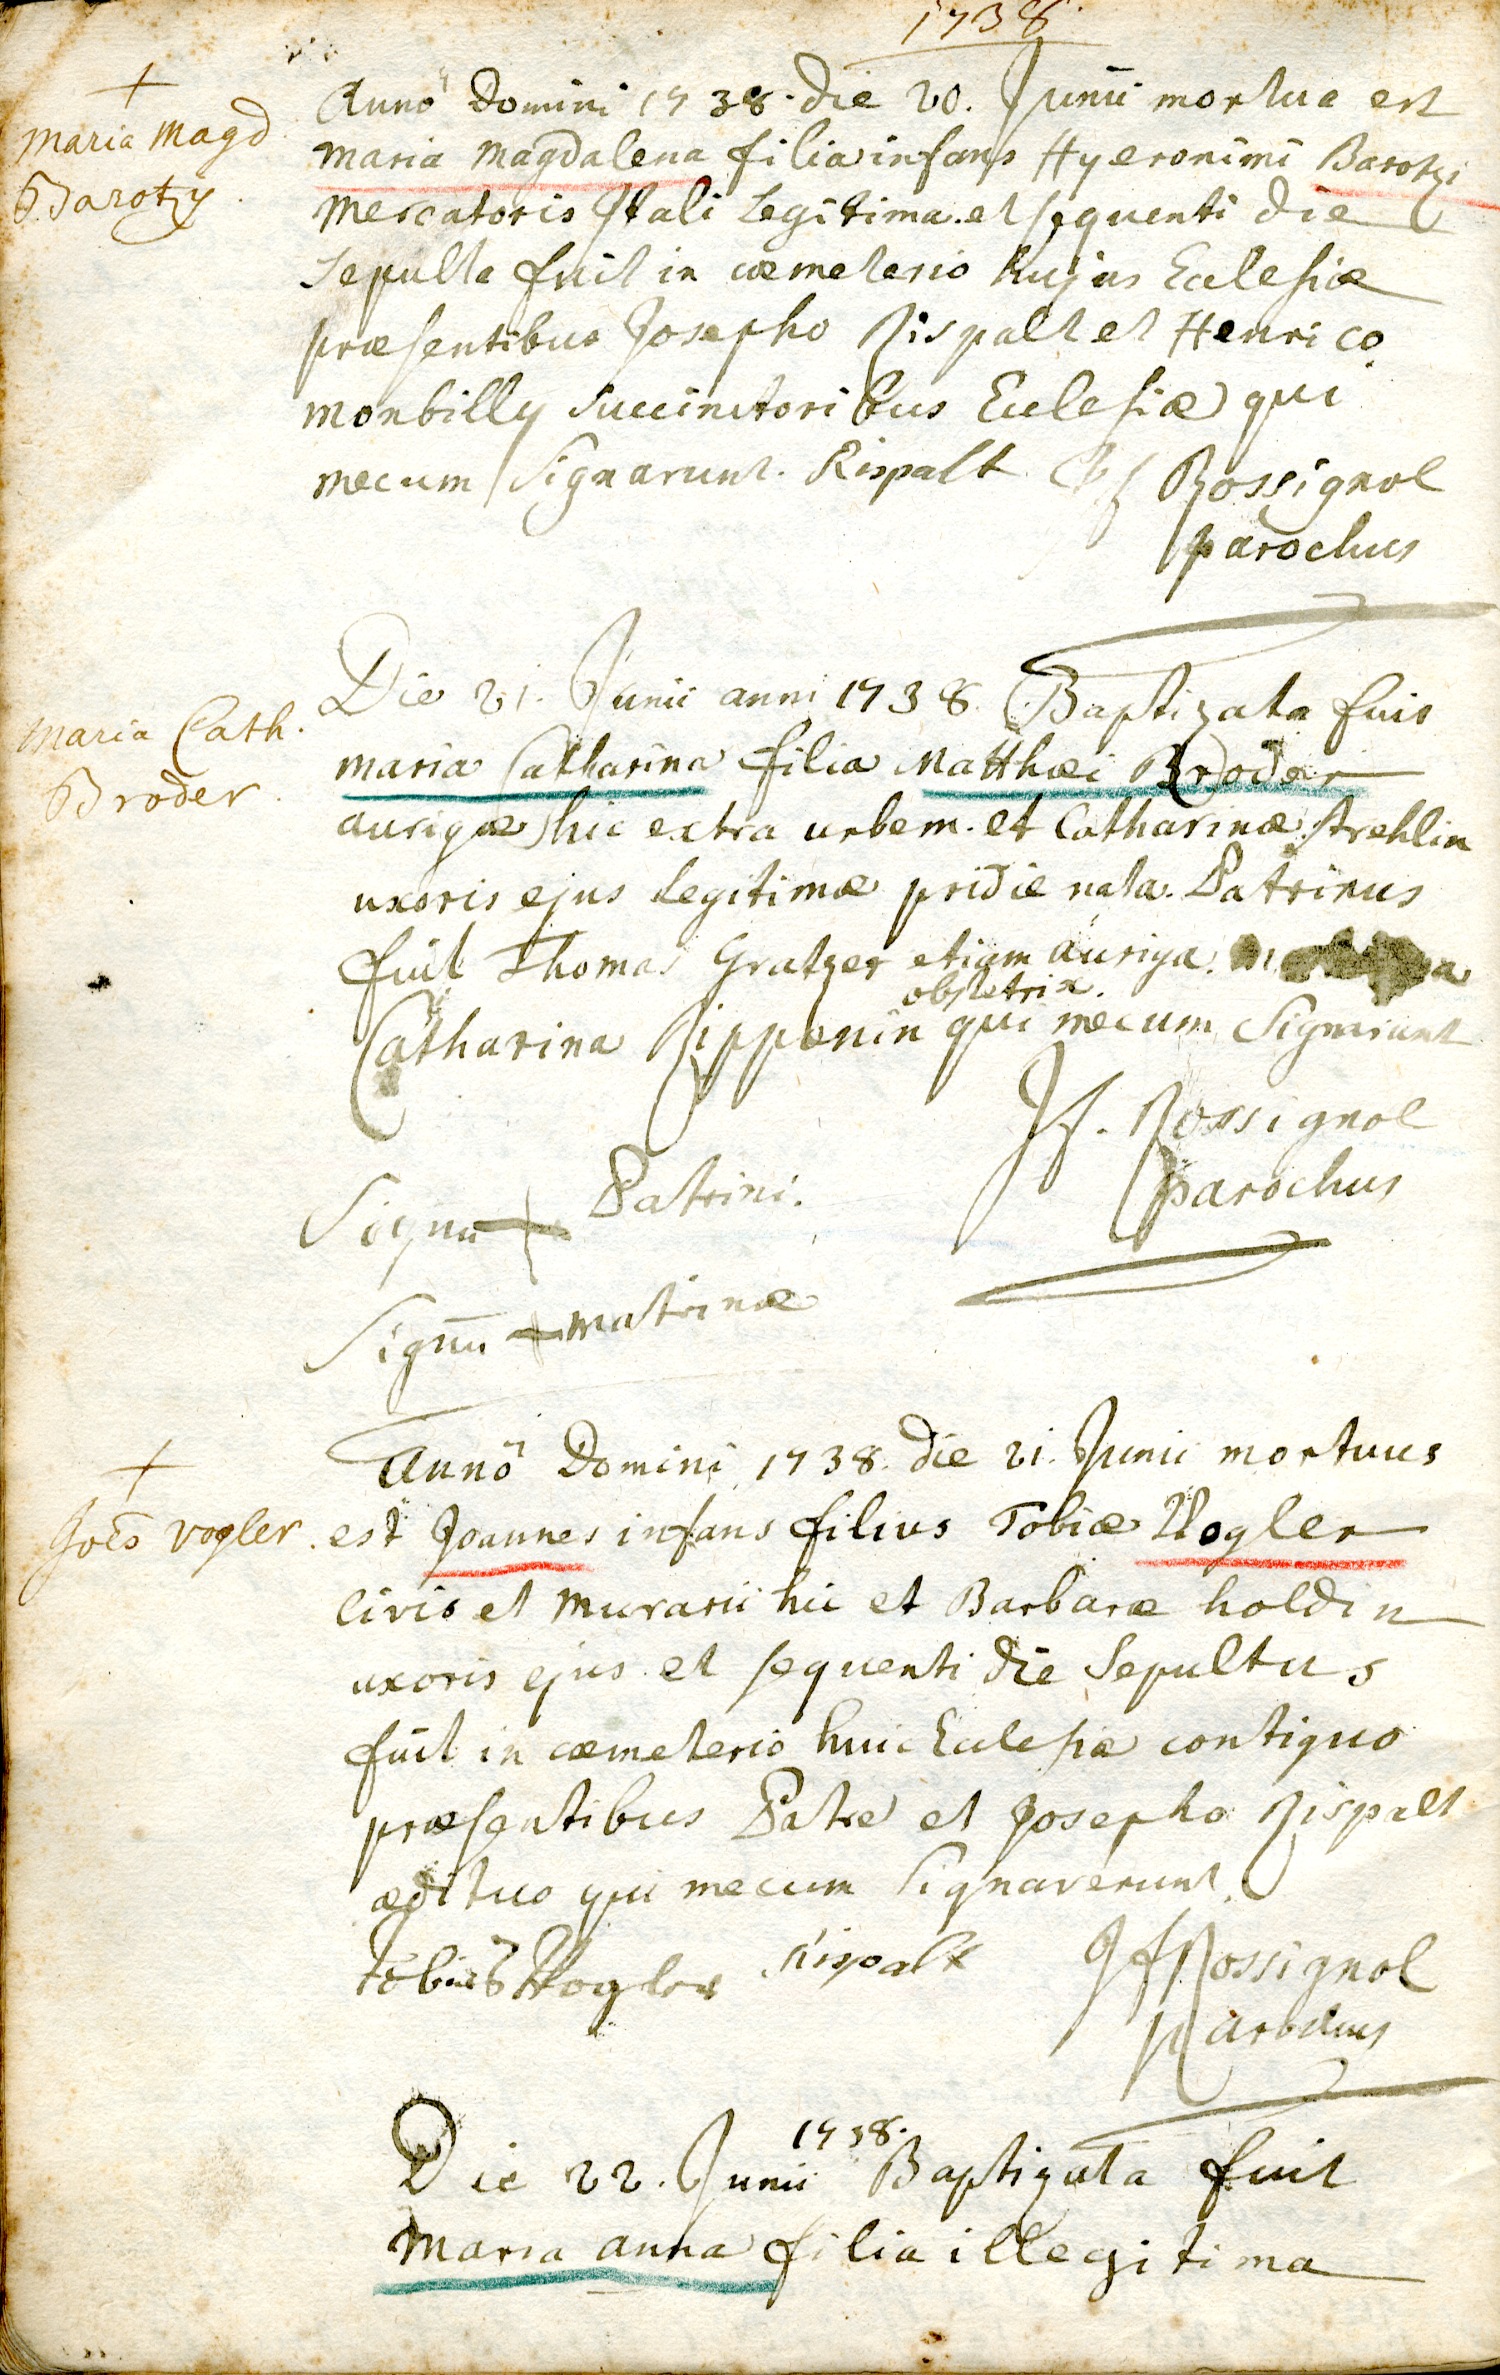 1738.
+
Maria Magd
Barotzy.
Anno Domini 1738. die 20. Junii mortua est
Maria Magdalena filia infans Hyeronimi Barotzi
Mercatoris Itali Legitima. et sequenti die
Sepulta fuit in cœmeterio hujus Ecclesiæ
præsentibus Josepho Rispalt et Henrico
monbilly Succinctoribus Ecclesiæ qui
mecum Signarunt. Rispalt Rossignol
parochus
Maria Cath.
Broder.
Die 21. Junii anni 1738. Baptizata fuit
maria Catharina filia Matthæi Broder
aurigæ hic extra urbem. et Catharinæ Strehlin
uxoris ejus Legitimæ pridie nata. Patrinus
fuit Thomas Gratzer etiam auriga.
obstetrix.
Catharina Rippenin qui mecum Signarunt
Jf. Rossignol
parochus
Signū + Patrini.
Signū + matrinæ
+
Joēs vogler.
Anno Domini 1738. die 21. Junii mortuus
est Joannes infans filius Tobiæ Vogler
Civis et Murarii hic et Barbaræ holdin
uxoris ejus et sequenti die Sepultus
fuit in cœmeterio huic Ecclesiæ contiguo
præsentibus Patre et Josepho Rispalt
ædituo qui mecum Signaverunt.
Tobias Vogler Rispalt Jf Rossignol
parochus
1738.
Die 22. Junii Baptizata fuit
Maria anna filia illegitima